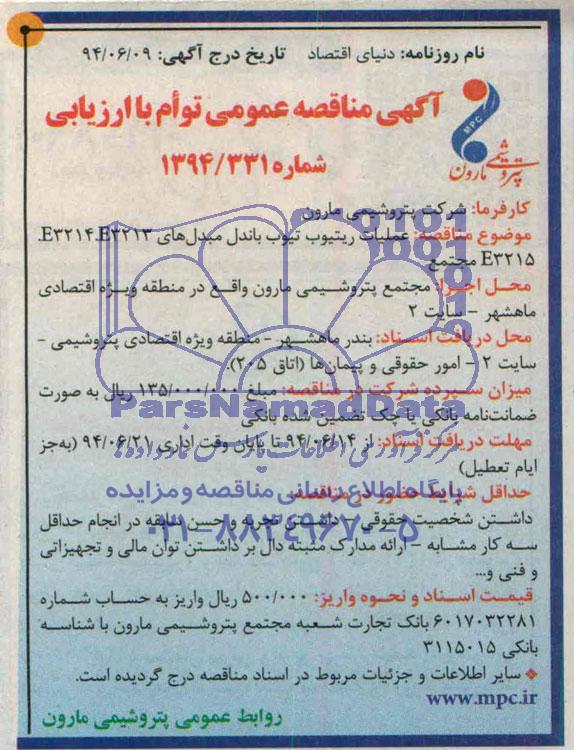 نام روزنامه: دنیای اقتصاد تاریخ درج آگهی: ۹۴/۰۶/۰۹
آگهی مناقصه عمومی توأم با ارزیابی
شماره ۱۳۹۴/۳۳۱
MPC
پتروشیمی مارون
کارفرما: شرکت پتروشیمی مارون
موضوع مناقصه: عملیات ریتیوب تیوب باندل مبدل‌های E۳۲۱۴،E۳۲۱۳،
E۳۲۱۵ مجتمع
محل اجرا: مجتمع پتروشیمی مارون واقع در منطقه ویژه اقتصادی
ماهشهر – سایت ۲
محل دریافت اسناد: بندر ماهشهر – منطقه ویژه اقتصادی پتروشیمی –
سایت ۲ – امور حقوقی و پیمان‌ها (اتاق ۲۰۵).
میزان سپرده شرکت در مناقصه: مبلغ ۱۳۵/۰۰۰/۰۰۰ ریال به صورت
ضمانت‌نامه بانکی یا چک تضمین شده بانکی
ParsNamadData
مهلت دریافت اسناد: از ۹۴/۰۶/۱۴ تا پایان وقت اداری ۹۴/۰۶/۲۱ (به‌جز
ایام تعطیل)
مرکز فرآوری اطلاعات پارس نماد داده‌ها
پایگاه اطلاع رسانی مناقصه و مزایده
حداقل شرایط حضور در مناقصه:
داشتن شخصیت حقوقی – داشتن تجربه و حسن سابقه در انجام حداقل
۰۲۱-۸۸۳۴۹۶۷۰-۵
سه کار مشابه – ارائه مدارک مثبته دال بر داشتن توان مالی و تجهیزاتی
و فنی و...
قیمت اسناد و نحوه واریز: ۵۰۰/۰۰۰ ریال واریز به حساب شماره
۶۰۱۷۰۳۲۲۸۱ بانک تجارت شعبه مجتمع پتروشیمی مارون با شناسه
بانکی ۳۱۱۵۰۱۵
سایر اطلاعات و جزئیات مربوط در اسناد مناقصه درج گردیده است.
www.mpc.ir
روابط عمومی پتروشیمی مارون